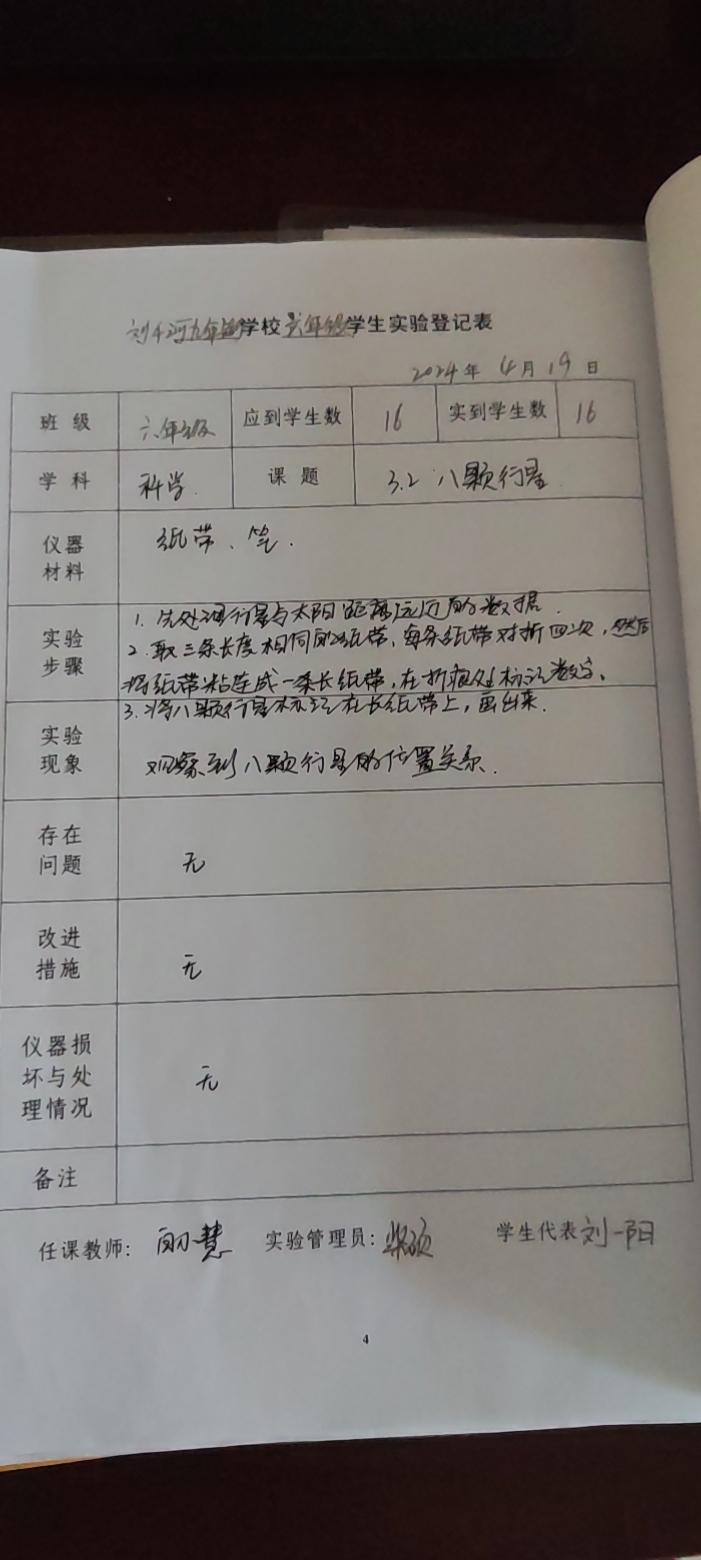 刘千河九年制学校六年级学生实验登记表
2024年 4月 19日
班 级 六年级 应到学生数 16 实到学生数 16
学 科 科学. 课 题 3.2 八颗行星
仪器
材料
纸带、笔.
实验
步骤
1. 先处理行星与太阳距离远近的数据.
2. 取三条长度相同的纸带,每条纸带对折四次,然后
将纸带粘连成一条长纸带,在折痕处标记数字、
3. 将八颗行星标记在长纸带上,画出来.
实验
现象
观察到八颗行星的位置关系.
存在
问题
无
改进
措施
无
仪器损
坏与处
理情况
无
备注
任课教师: 慧 实验管理员: 硕 学生代表 刘一阳
4